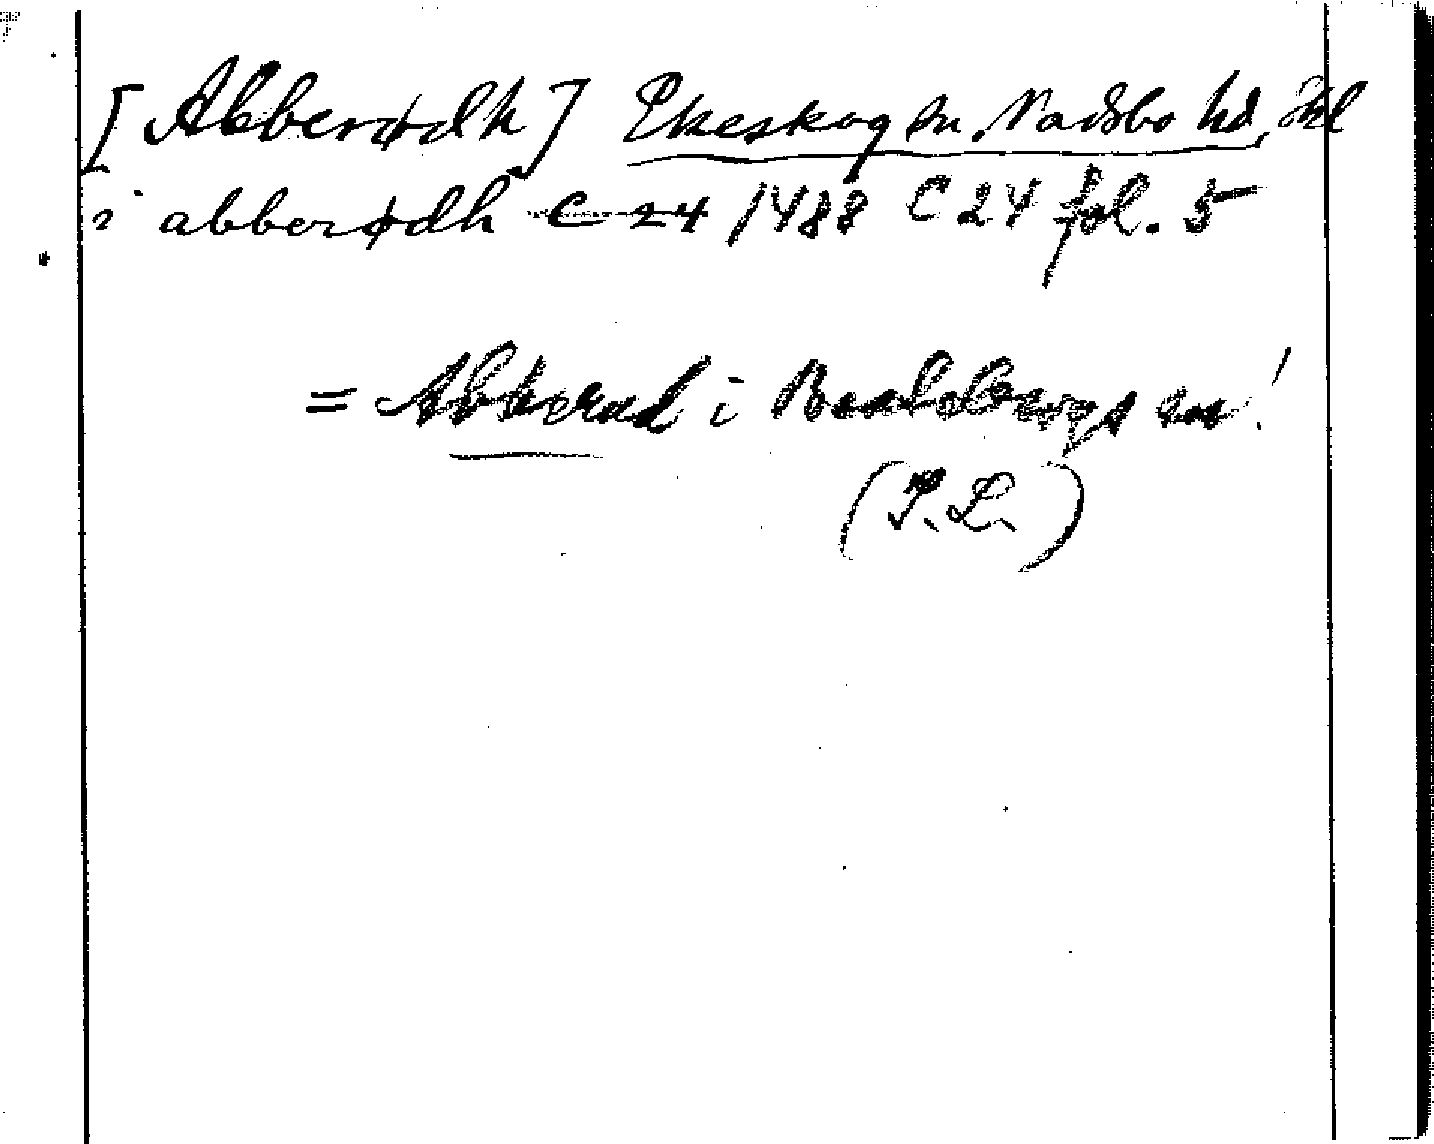 [Abberødh] Ekeskog sn, Vadsbo hd, Skl
i abberødh C 24 1488 C 24 fol. 5
= Abberud i Beatebergs sn!
(I. L.)